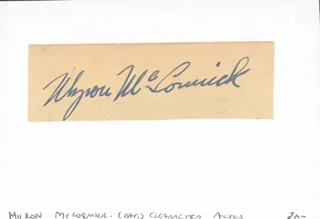 Myron McCormick
MYRON McCORMICK. (DEC.) CHARACTER ACTOR 20-